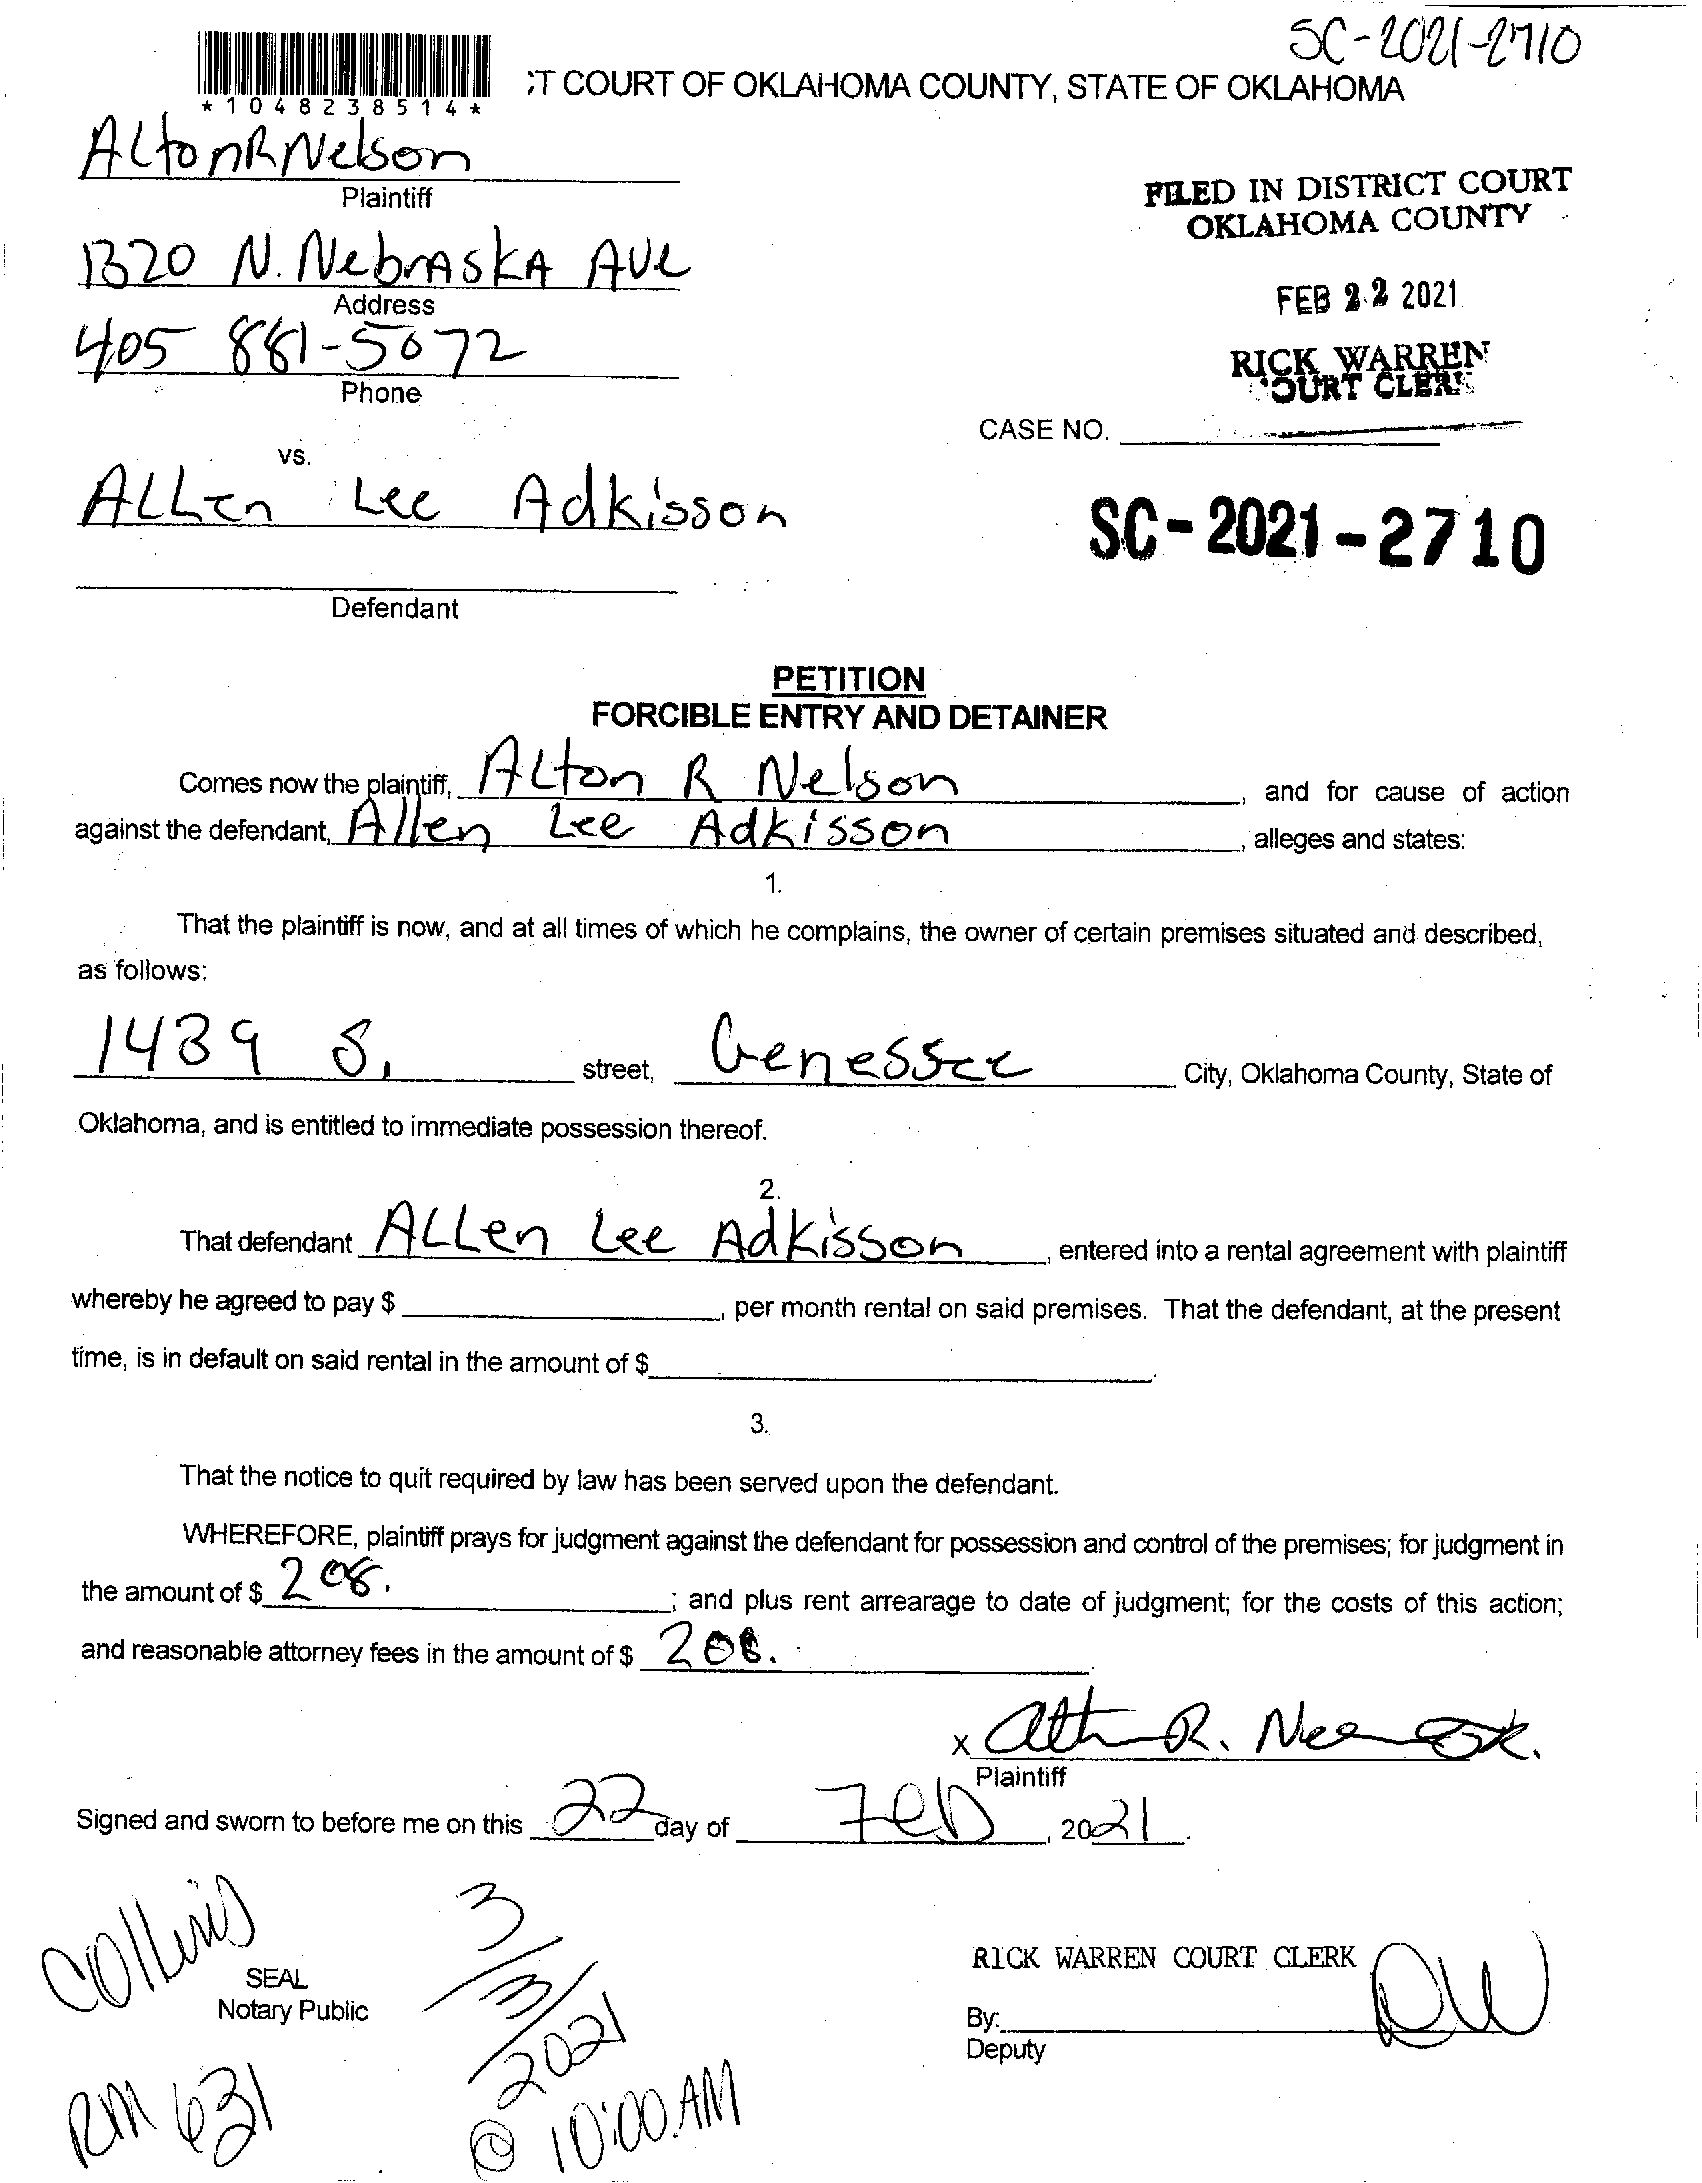 SC-2021-2710
*1048238514*
T COURT OF OKLAHOMA COUNTY, STATE OF OKLAHOMA
Alton R Nelson
Plaintiff
FILED IN DISTRICT COURT
OKLAHOMA COUNTY
1320 N. Nebraska Ave
Address
FEB 22 2021
405 881-5072
Phone
RICK WARREN
COURT CLERK
CASE NO.
vs.
Allen Lee Adkisson
SC-2021-2710
Defendant
PETITION
FORCIBLE ENTRY AND DETAINER
Comes now the plaintiff, Alton R Nelson, and for cause of action
against the defendant, Allen Lee Adkisson, alleges and states:
1.
That the plaintiff is now, and at all times of which he complains, the owner of certain premises situated and described,
as follows:
1439 S. street, Genessee City, Oklahoma County, State of
Oklahoma, and is entitled to immediate possession thereof.
2.
That defendant ALLen Lee Adkisson, entered into a rental agreement with plaintiff
whereby he agreed to pay $, per month rental on said premises. That the defendant, at the present
time, is in default on said rental in the amount of $.
3.
That the notice to quit required by law has been served upon the defendant.
WHEREFORE, plaintiff prays for judgment against the defendant for possession and control of the premises; for judgment in
the amount of $ 208.; and plus rent arrearage to date of judgment; for the costs of this action;
and reasonable attorney fees in the amount of $ 208.
x Alton R. Nelson
Plaintiff
Signed and sworn to before me on this 22 day of Feb, 2021.
Collins
3/3/2021
@ 10:00 AM
SEAL
Notary Public
RM 631
RICK WARREN COURT CLERK
By:
Deputy